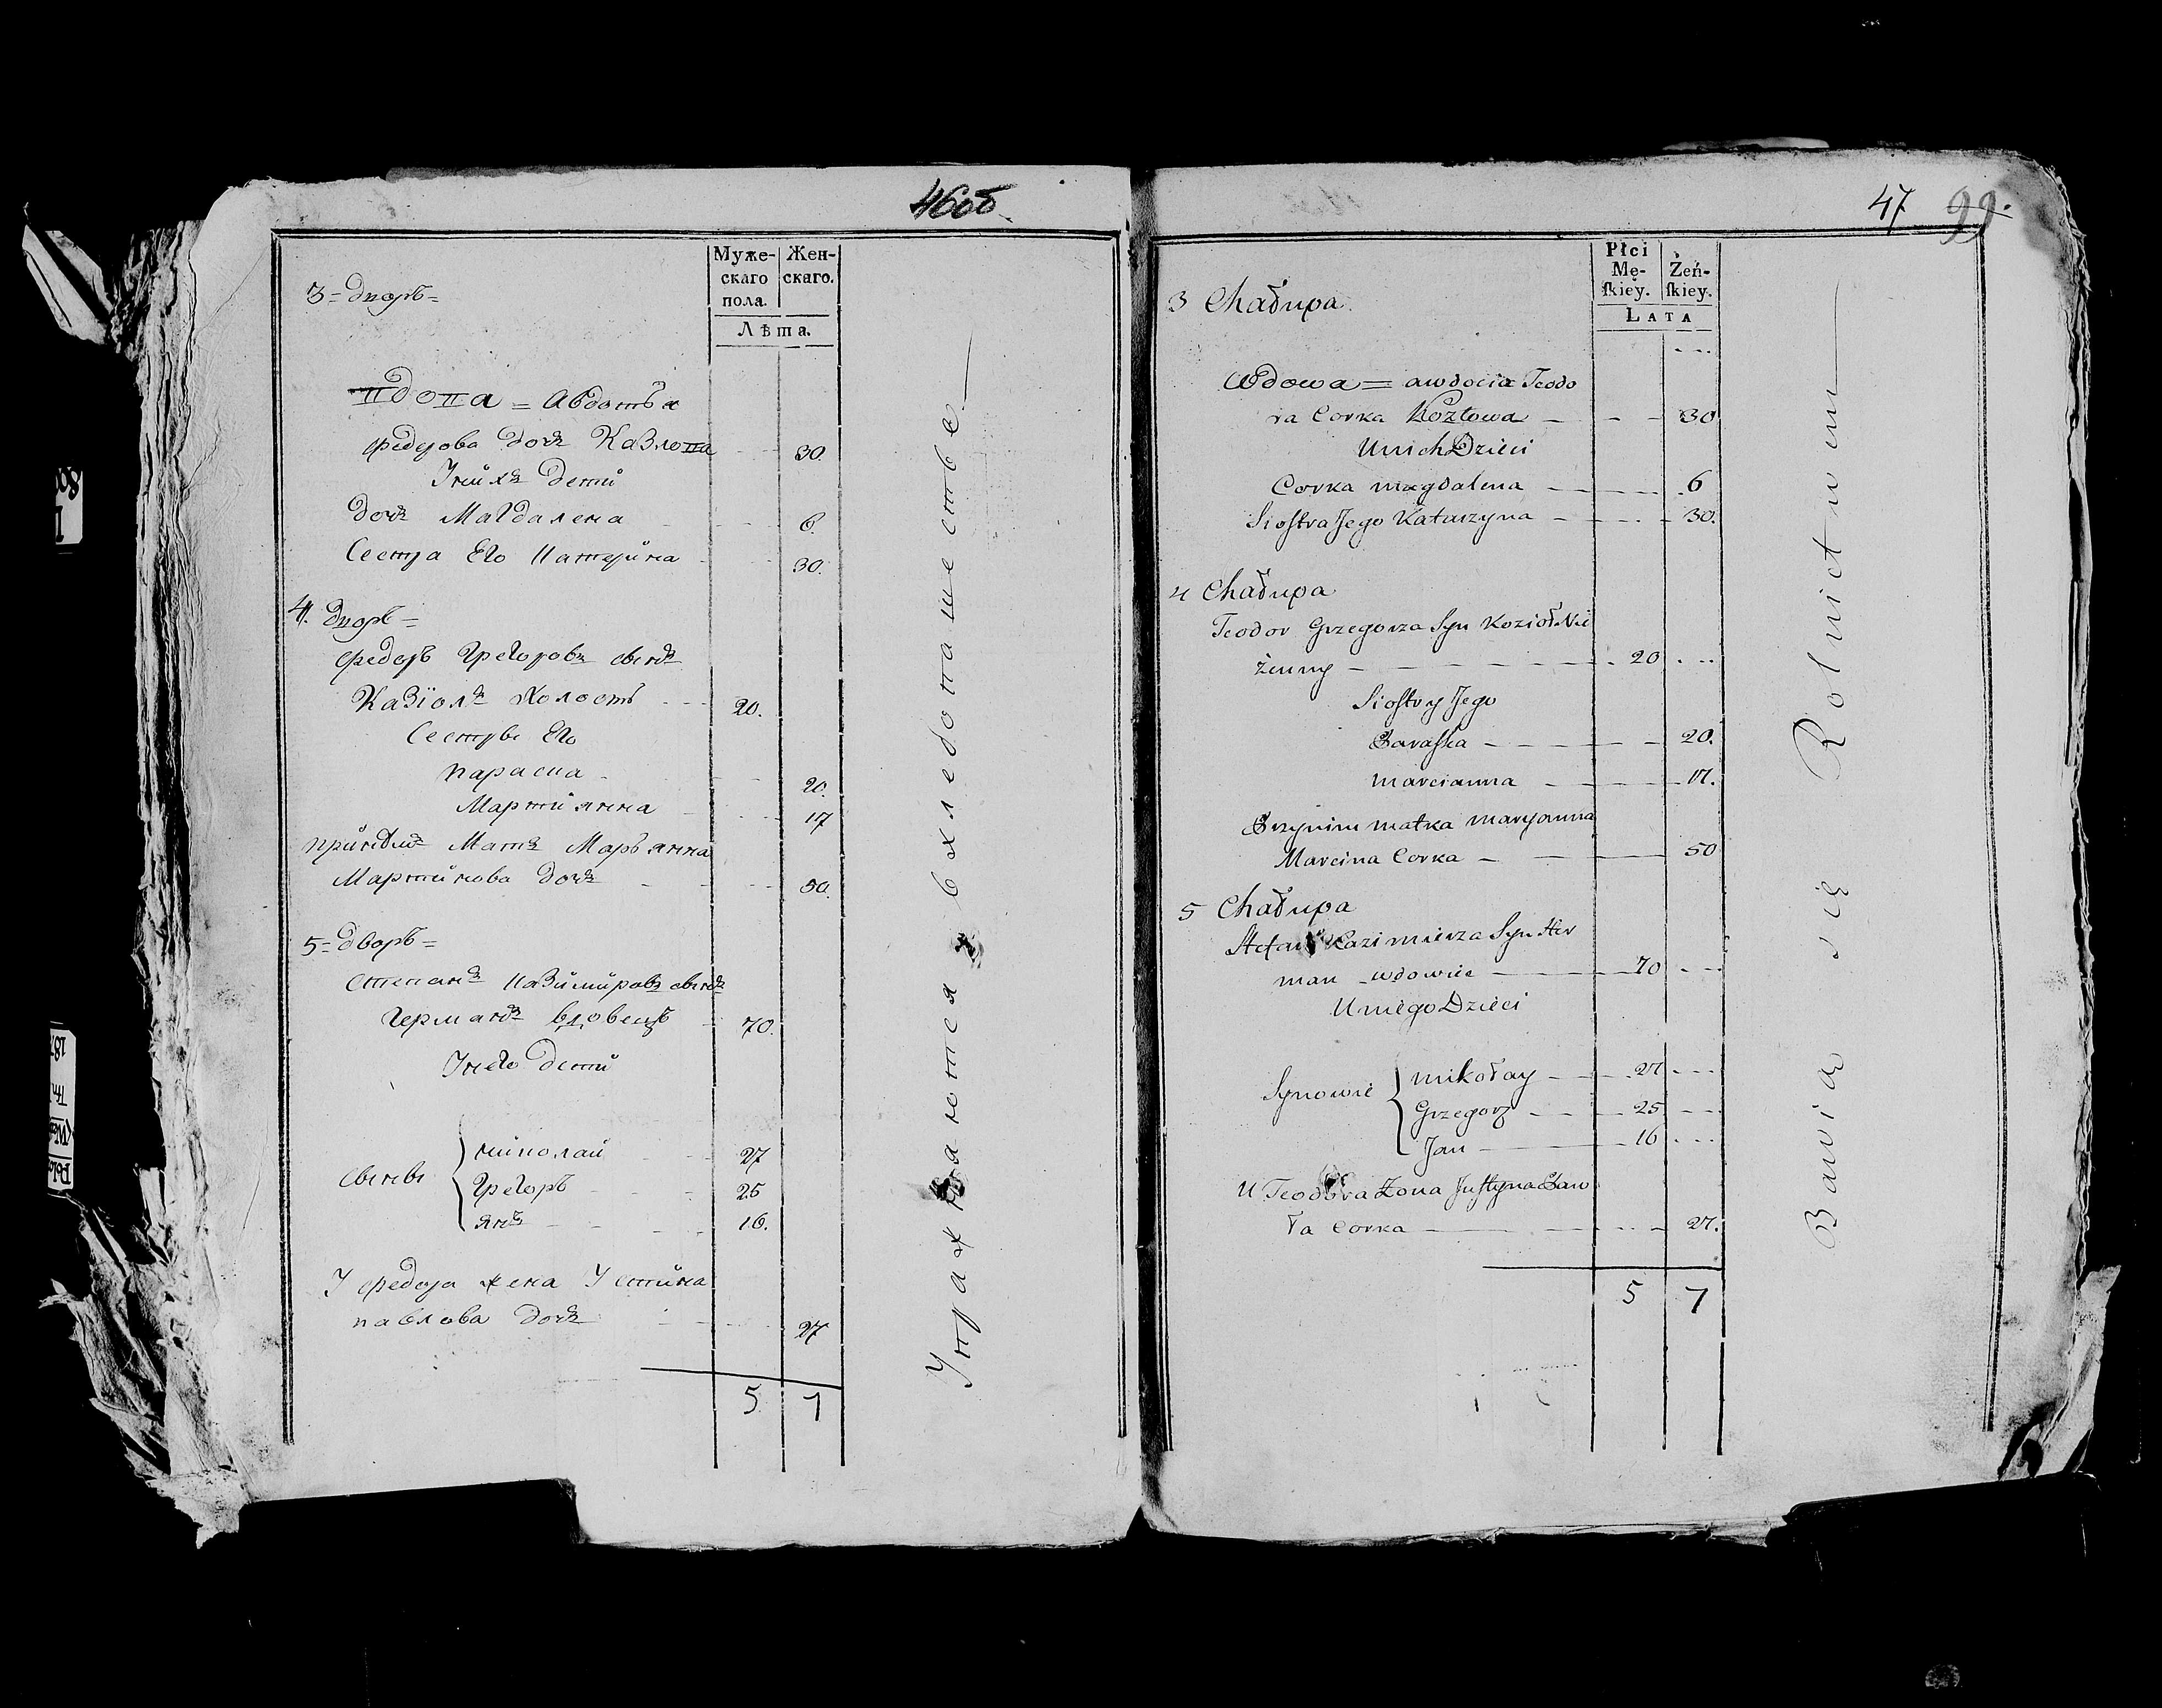 46об
Муже-
скаго
пола.
Жен-
скаго.
Лѣта.
3 = дворъ =
вдова = Авдотья
федорова дочь Казлова 30.
Унихъ дети
дочь Магдалена 6.
Сестра Его Катерина 30.
4. дворъ =
Федоръ Грегоровъ сынъ
Казіолъ холостъ 20.
Сестры Его
Параска 20.
Мартиянна 17
принемъ Мать Марьянна
Мартинова дочь 50.
5 = дворъ =
Степанъ Казимировъ сынъ
Германъ вдовецъ 70.
Унего дети
сыны
николай 27
Грегоръ 25
янъ 16.
У федора жена Устина
павлова дочь 27
5 7
Упражняются в хледопашестве
47 99.
Płci
Mę-
ſkiey.
Żeń-
ſkiey.
LATA
3 Chałupa
Wdowa = awdocia Teodo
ra Corka Kozłowa 30
Unich Dzieci
Corka magdalena 6
Siostra Jego Katarzyna 30.
4 Chałupa
Teodor Grzegorza Syn Kozioł Nie
żenny 20
Siostry Jego
Paraska 20.
marcianna 17.
Przynim matka maryanna
Marcina Corka 50
5 Chałupa
Stefan Kazimierza Syn Her
man wdowiec 70
U niego Dzieci
Synowie
mikołay 27
Grzegorz 25
Jan 16
U Teodora Żona Justyna Paw
ła Corka 27.
5 7
Bawią się Rolnictwem